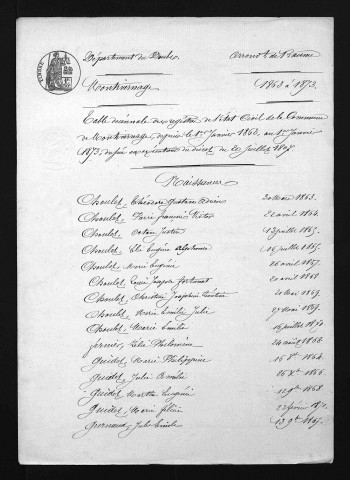 Département du Doubs
Arrond.t de Baume
Montivernage
1863 à 1873
Table décennale des registres de l'état Civil de la Commune
de Montivernage, depuis le 1er Janvier 1863, au 1er Janvier
1873, dressée en exécution du décret du 20 Juillet 1807.
Naissances
Choulet, Théodore Gustave 20 Mars 1863.
Choulet, François Victor 22 avril 1864.
Choulet, Justin 13 juillet 1865.
Choulet, Eugène Alphonse 16 juillet 1865.
Choulet, Marie Eugénie avril 1867.
Choulet, Louis Joseph Fortunat avril 1868
Choulet, Christine Joséphine Mai 1869.
Choulet, Marie Emélie Julie Mai 1869.
Choulet, Marie Emélie juillet 1870.
Philomène 24 août 1866
Guidet, Marie Philippine 15 Xbre 1864.
Guidet, Julie Amélie Xbre 1866.
Guidet, Marthe Eugénie 9bre 1868.
Guidet, Marie 22 février 1871.
Jules Emile 13 9bre 1867.